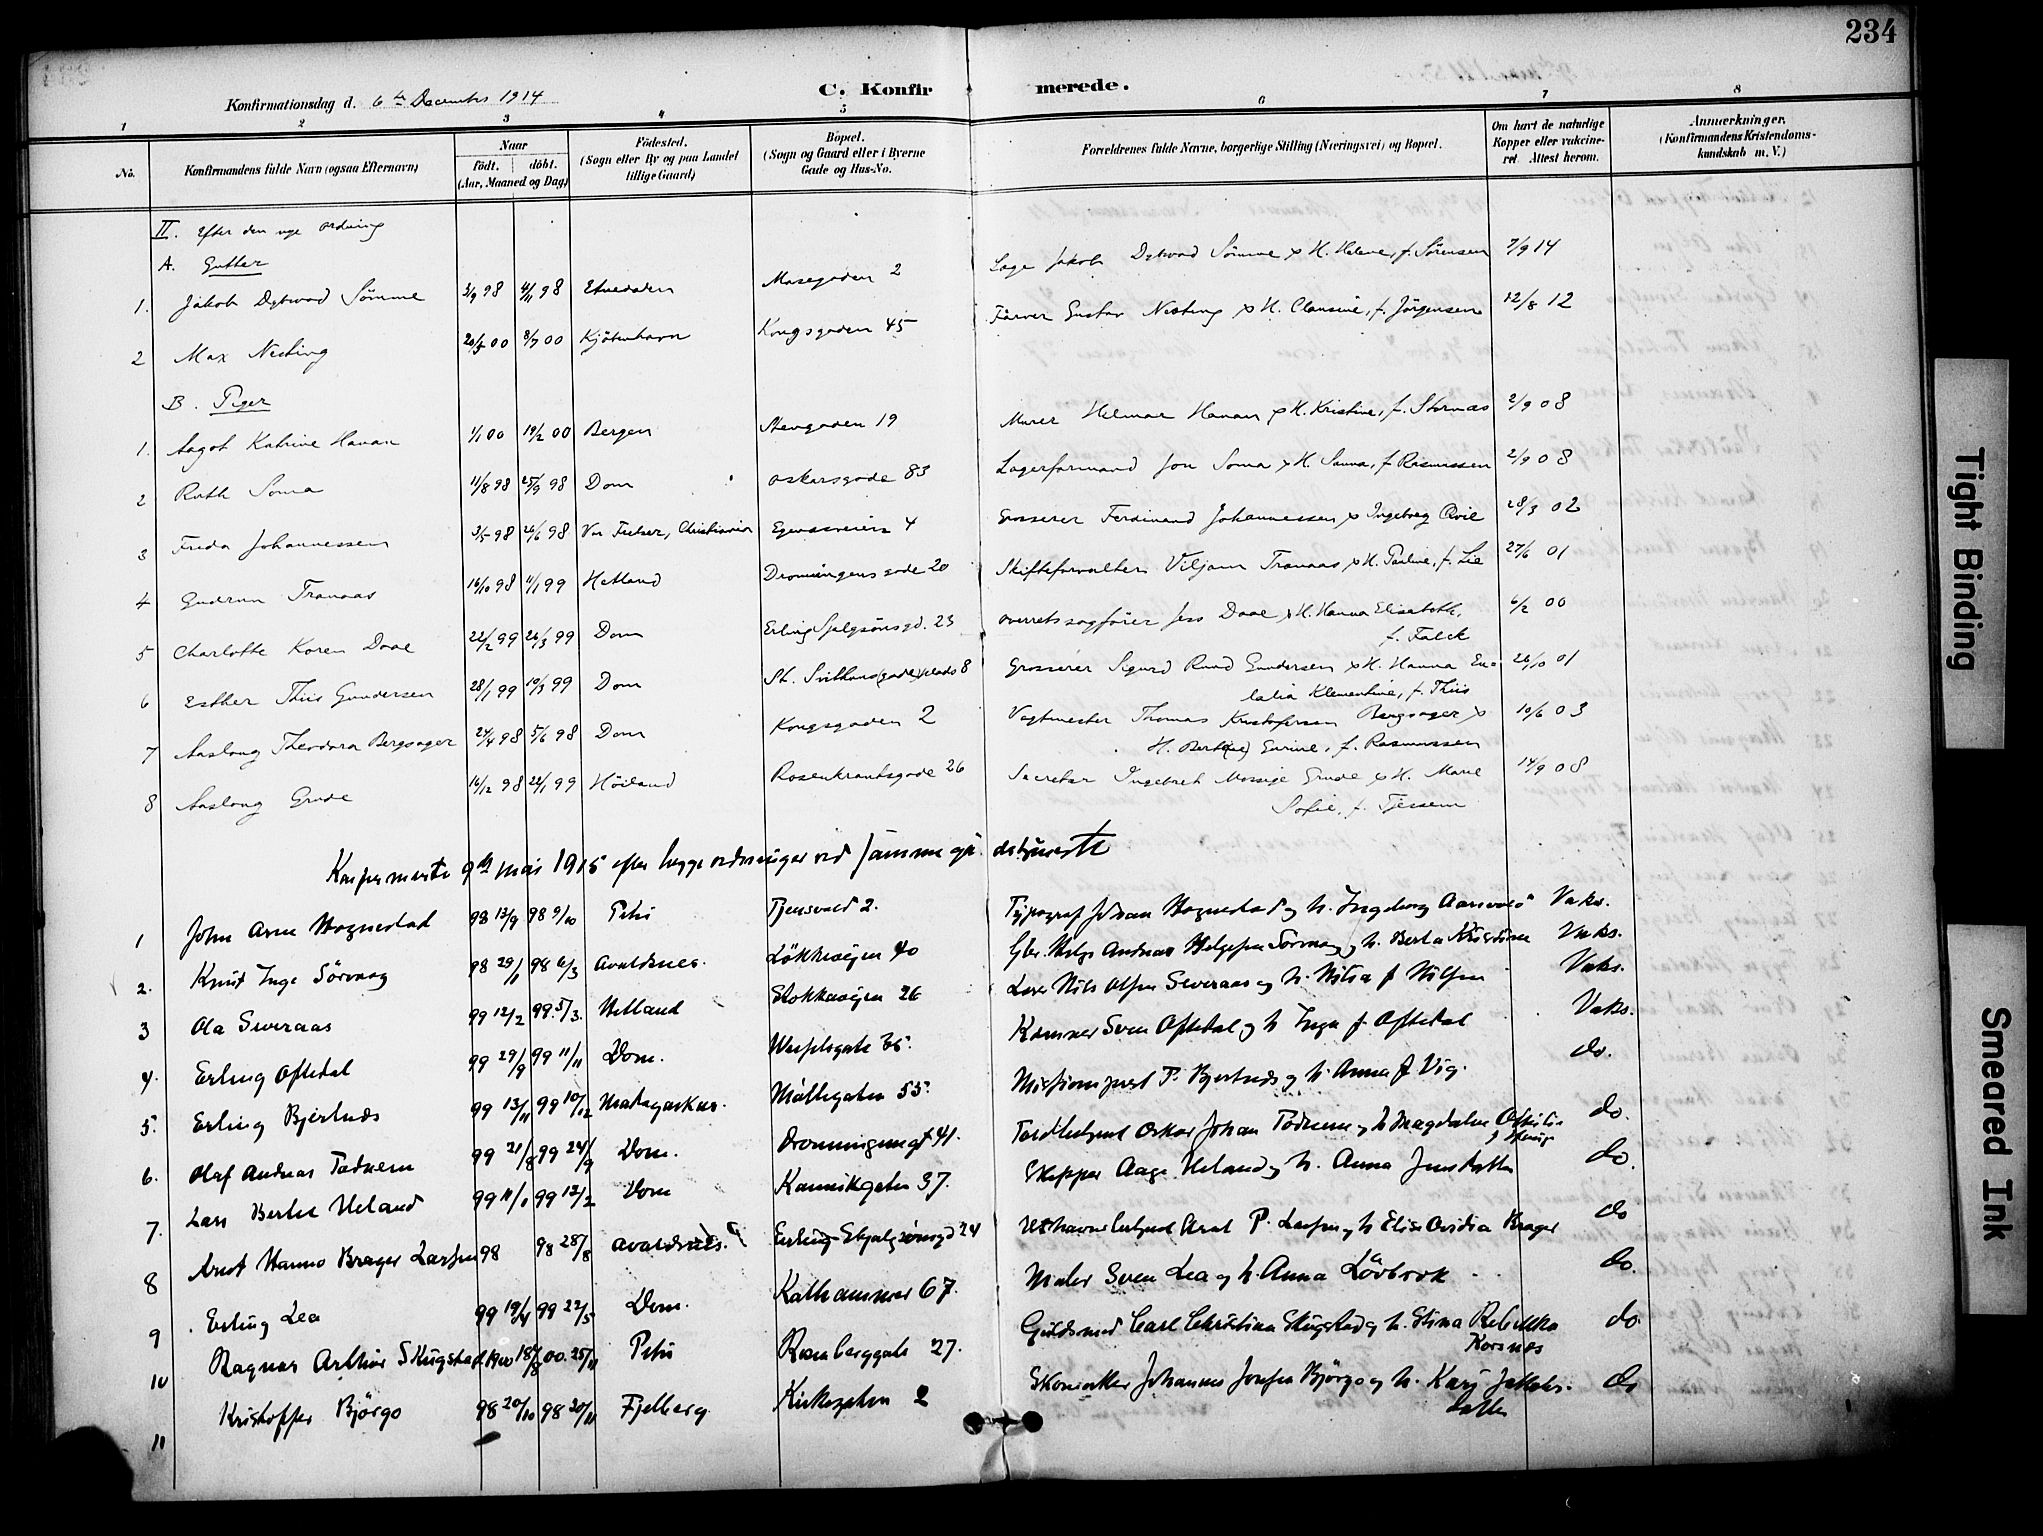 234
C. Konfirmerede.
Konfirmationsdag d. 6te December 1914
1 2 3 4 5 6 7 8
No. Konfirmandens fulde Navn (ogsaa Efternavn) Naar födt. döbt. (Aar, Maaned og Dag) Födested. (Sogn eller By og paa Landet tillige Gaard) Bopæl. (Sogn og Gaard eller i Byerne Gade og Hus-No. Forældrenes fulde Navne, borgerlige Stilling (Næringsvei) og Bopæl. Om havt de naturlige Kopper eller vakcineret. Attest herom. Anmærkninger. (Konfirmandens Kristendomskundskab m. V.)
II. Efter den nye ordning
A. Gutter
1. Jakob Dybwad Sömme 98 4/11 98 Etnedalen Mosegaden 2 Jakob Dybwad Sömme x H. Helene, f. Sörensen 7/9 14
2 Max Nesting 00 00 Kjöbenhavn Kongsgaden 45 Farver Gustav Nesting x H. Clausine, f. Jörgensen 12/8 12
B. Piger
1. Aagot Katrine Hanan 1/1 00 19/2 00 Bergen Stengaden 19 Murer Helmar Hanan x H. Kristine, f. Stornæs 2/9 08
2 Ruth Soma 11/8 98 25/9 98 Dom Oskarsgade 83 Lagerformand Jon Soma x H. Sanna, f. Rasmussen 2/9 08
3 Frida Johannessen 3/5 98 26/6 98 Vor Frelser, Christiania Egenæsveien 4 Grosserer Ferdinand Johannessen x Ingeborg Qvil 28/3 02
4 Gudrun Tranaas 16/10 98 11/1 99 Hetland Dronningens gade 20 Skifteforvalter Viljam Tranaas x H. Pauline, f. Lie 27/6 01
5 Charlotte Koren Daae 22/2 99 26/3 99 Dom Erling Skjalgsönsgd. 23 Overretssagförer Jess Daae x H. Hanna Elisabeth, f. Falck 6/2 00
6 Esther Thiis Gundersen 28/1 99 19/3 99 Dom St. Svithuns (gade) plads 8 Grosserer Sigurd Rund Gundersen x H. Hanna Eulalia Klementine, f. Thiis 26/10 01
7 Aaslaug Theodora Bergsager 24/4 98 5/6 98 Dom Kongsgaden 2 Vagtmester Thomas Kristofersen Bergsager x H. Bert(he) Gurine, f. Rasmussen 10/6 03
8 Aaslaug Grude 16/12 98 22/1 99 Höiland Rosenkrantsgade 26 Sekretær Ingebret Mossige Grude x H. Marie Sofie, f. Tjessem 14/9 08
Konfirmerte 9de mai 1915 efter begge ordninger ved samme gudstjeneste
1 John Arne Hognestad 98 13/9 98 9/10 Petri Tjensvold 2. Typograf Johan Hognestad og h. Ingeborg Vaks.
2. Knut Inge Sörvaag 98 29/1 98 6/3 Avaldsnes. Lökkeveien 40 Gbr. Helge Andreas Helgesen Sörvaag og h. Berta Kristine Vaks.
3 Ola Sveraas 99 12/2 99. 5/3. Hetland Stokkaveien 26 Lærer Nils Olsen Sveraas og h. Nilia f Nilsen Vaks.
4. Erling Oftedal 99 29/9 99 11/11 Dom. Kæmner Sven Oftedal og h Inga f. Oftedal Vaks.
5. Erling Bjertnæs 99 13/11 99 10/12 Madagaskar. Möllegaten 55. Missionsprest P. Bjertnæs og h. Anna f Vig. do.
6. Olaf Andreas Tednem 99 21/8 99 24/9 Dom. Dronningensgt 41. Toldbetjent Oskar Johan Tednem og h Magdalene do.
7. Lars Bertel Heland 99 11/1 99 12/2 Dom Kannikgaten 37. Skipper Aage Heland og h. Anna Jensdatter do.
8 Arnt Hanno Brager Larsen 98 98 28/8 Avaldsnes. Erling Skjalgsönsgd 24 Arnt P. Larsen og h Elise Ovidia Brager do
9 Erling Lea 99 19/4 99 22/5 Dom. Kalhammer 67. Maler Sven Lea og h. Anna Lövbrok do.
10 Ragnar Arthur Skugstad 1900 18/8 00. 25/11 Petri Rosenberggate 27. Guldsmed Carl Christian Skugstad og h. Stina Rebekka Korsnes do.
11 Kristoffer Björgo 98 20/10 98 20/11 Fjelberg Kirkegaten 2 Skomaker Johannes Josefsen Björgo og h. Kari Jakobsdatter do
Tight Binding
Smeared Ink